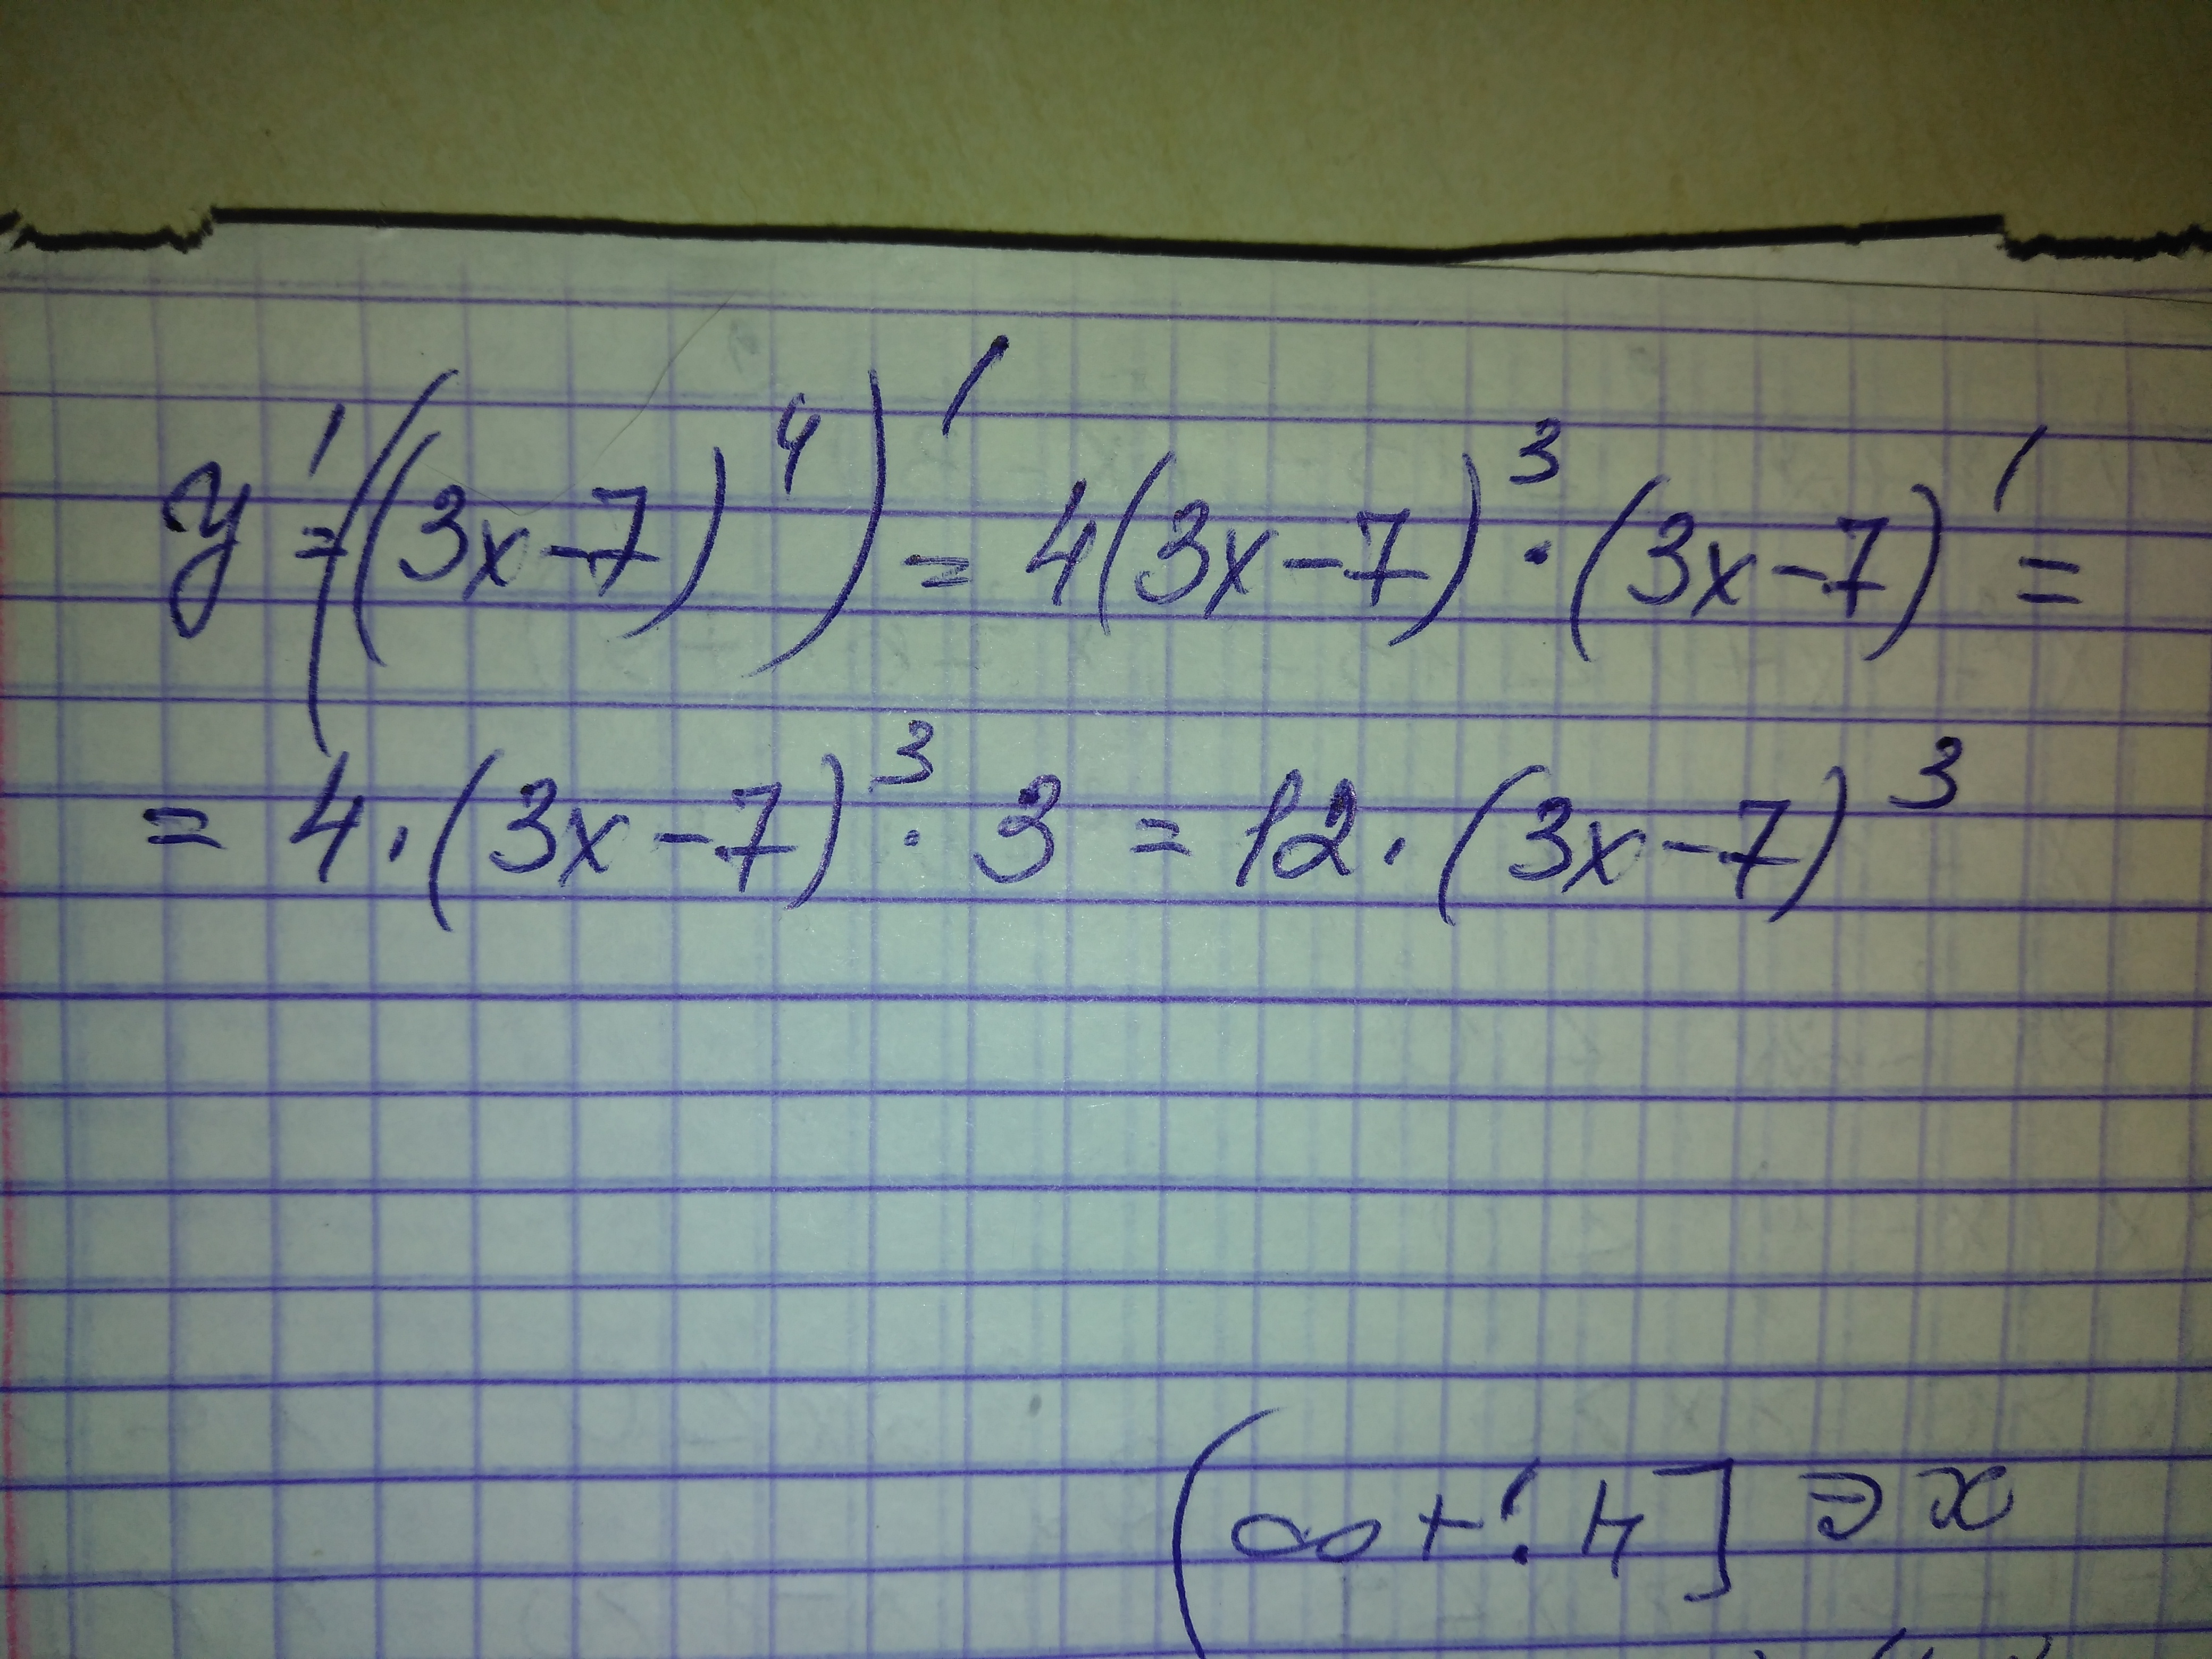 y' = ((3x-7)⁴)' = 4(3x-7)³·(3x-7)' =
= 4·(3x-7)³·3 = 12·(3x-7)³
x ∈ [4; +∞)